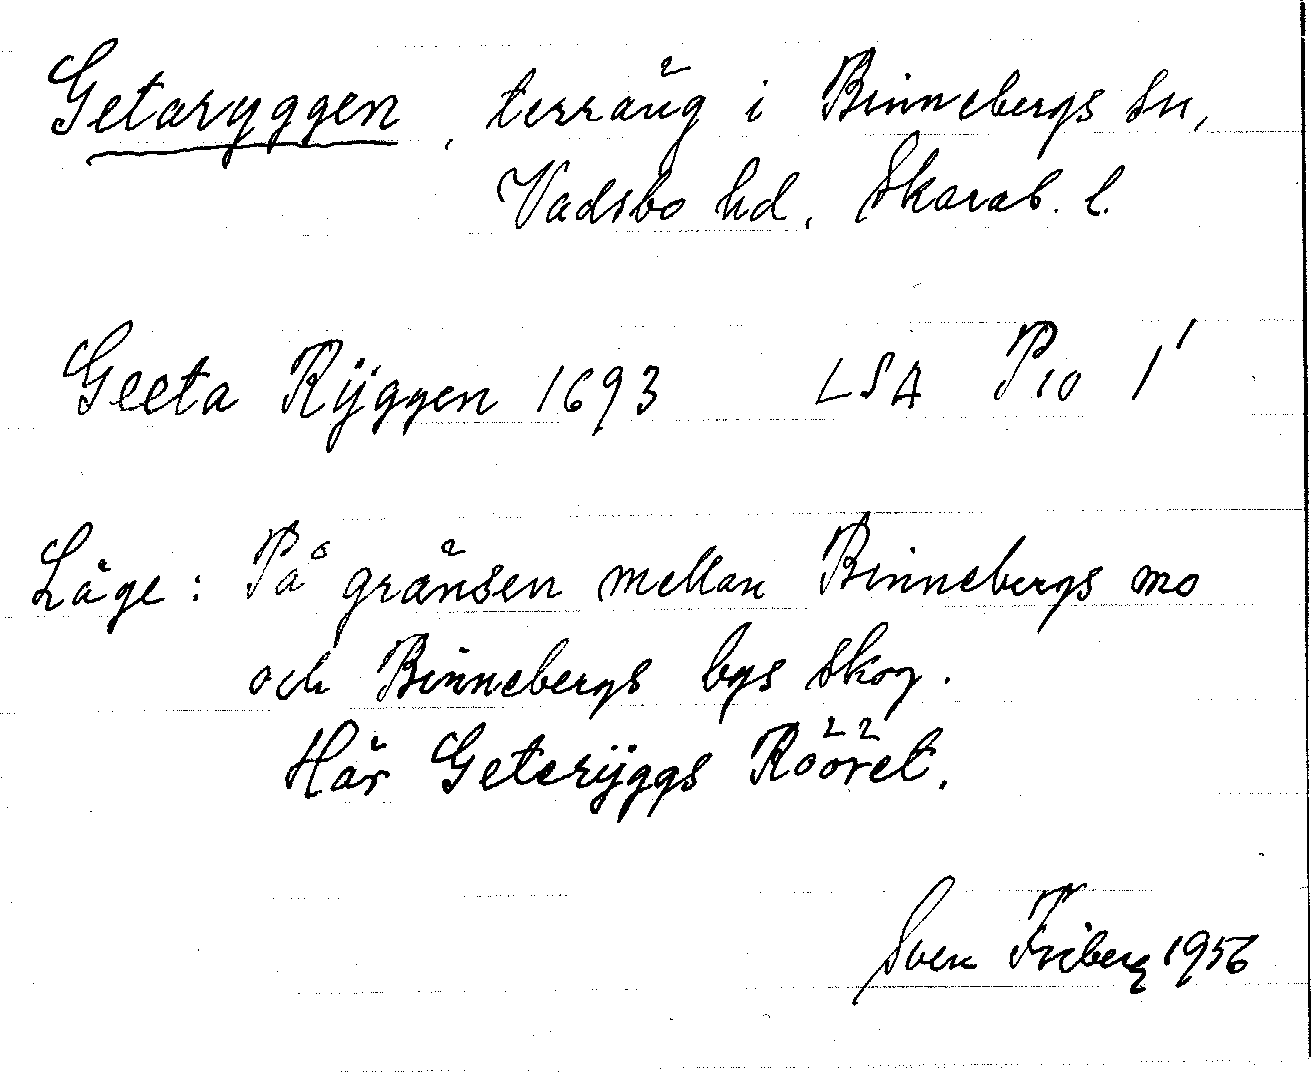 Getaryggen, terräng i Binnebergs sn,
Vadsbo hd, Skarab. l.
Geeta Rÿggen 1693 LSA P10 1'
Läge: På gränsen mellan Binnebergs mo
och Binnebergs bys skog.
Här Geterÿggs Rööret.
Sven Friberg 1956